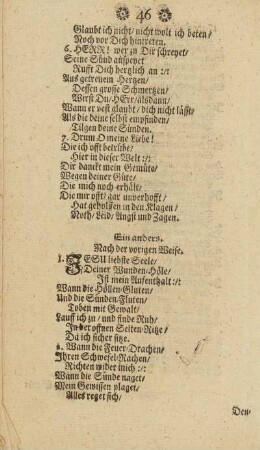 46
Glaubt ich nicht/ nicht wolt ich beten/
Noch vor Dich hintreten.
6. HERR! wer zu Dir schreyet/
Seine Sünd ausspeyet
Rufft Dich hertzlich an :/:
Aus getreuem Hertzen/
Dessen grosse Schmertzen/
Wirst Du/ HErr/ alsdann/
Wann er vest glaubt/ dich nicht lässt/
Als die deine selbst empfinden/
Tilgen deine Sünden.
7. Drum O meine Liebe!
Die ich offt betrübe/
Hier in dieser Welt :/:
Dir danckt mein Gemüte/
Wegen deiner Güte/
Die mich noch erhält/
Die mir offt/ gar unverhofft/
Hat geholffen in den Klagen/
Noth/ Leid/ Angst und Zagen.
Ein anders.
Nach der vorigen Weise.
1. JESU liebste Seele/
Deiner Wunden-Höle/
Ist mein Aufenthalt :/:
Wann die Höllen-Gluten/
Und die Sünden-Fluten/
Toben mit Gewalt/
Lauff ich zu/ und finde Ruh/
In der offnen Seiten-Ritze/
Da ich sicher sitze.
2. Wann die Feuer-Drachen/
Ihren Schwefel-Rachen/
Richten wider mich :/:
Wann die Sünde naget/
Mein Gewissen plaget/
Alles reget sich/
Den-